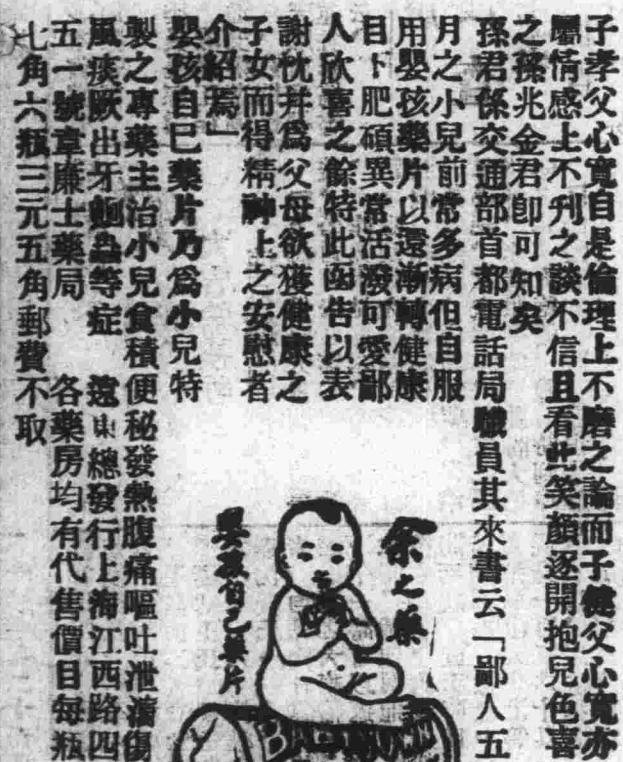 子孝父心寬自是倫理上不磨之論而子健父心寬亦
屬情感上不刊之談不信且看此笑顏逐開抱兒色喜
之孫兆金君卽可知矣
孫君係交通部首都電話局職員其來書云「鄙人五
月之小兒前常多病但自服
用嬰孩藥片以還漸轉健康
目下肥碩異常活潑可愛鄙
人欣喜之餘特此函告以表
謝忱幷爲父母欲獲健康之
子女而得精神上之安慰者
介紹焉」
嬰孩自己藥片乃爲小兒特
製之專藥主治小兒食積便秘發熱腹痛嘔吐泄瀉傷
風痰厥出牙蛔蟲等症 遠東總發行上海江西路四
五一號韋廉士藥局 各藥房均有代售價目每瓶
七角六瓶三元五角郵費不取
余之藥
嬰孩自己藥片